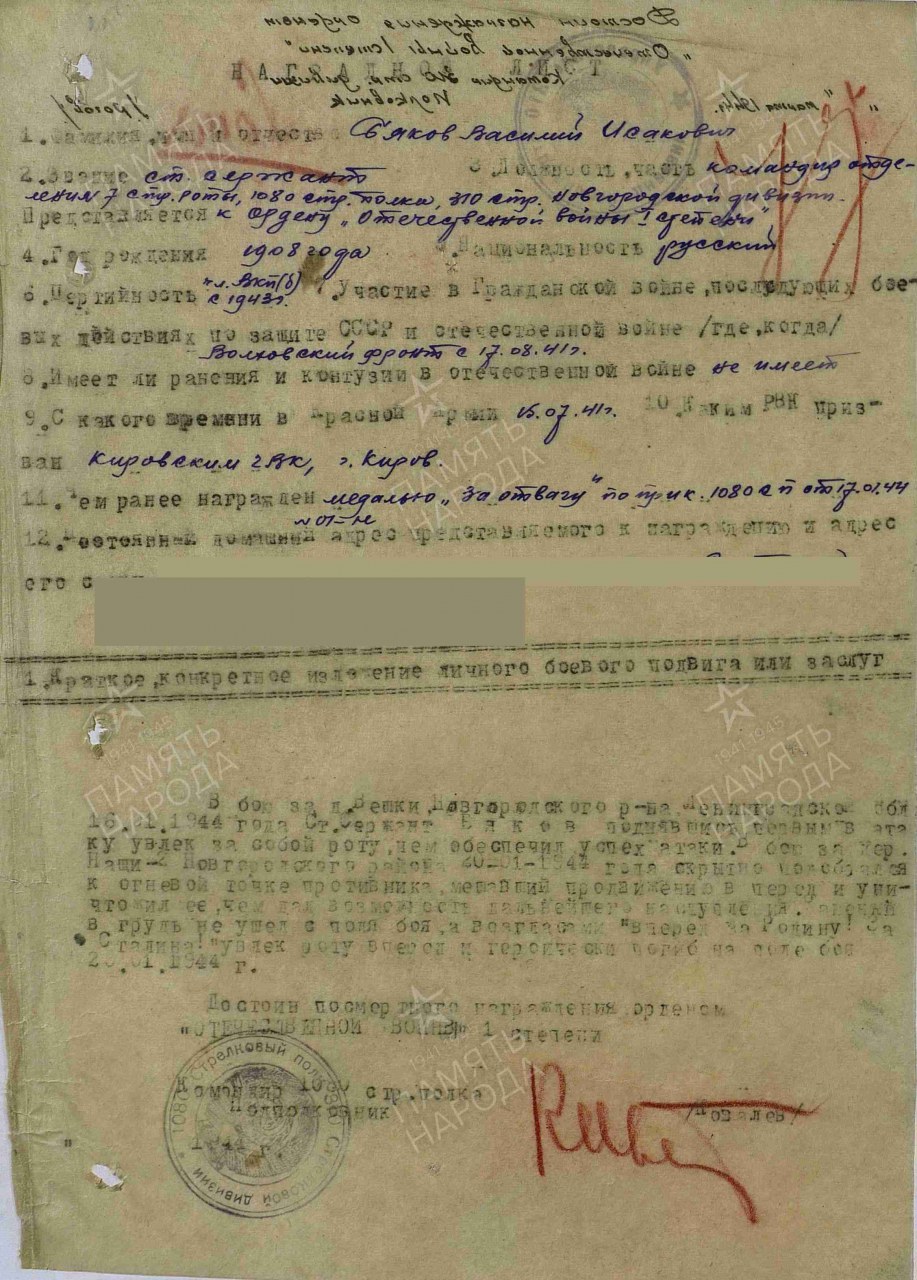 Достоин награждения орденом
"Отечественной Войны I степени"
НАГРАДНОЙ ЛИСТ
Командир 310 стр. дивизии
Полковник
" " марта 1944г. /Рогов/
1. Фамилия, имя и отчество Бяков Василий Исакович
2. Звание ст. сержант 3. Должность, часть командир отде-
ления 7 стр. роты, 1080 стр. полка, 310 стр. Новгородской дивизии.
Представляется к Ордену "Отечественной войны I степени"
4. Год рождения 1908 года 5. Национальность русский
6. Партийность чл. ВКП(б) с 1943г. 7. Участие в Гражданской войне, последующих бое-
вых действиях по защите СССР и отечественной войне /где, когда/
Волховский фронт с 17.08.41г.
8. Имеет ли ранения и контузии в отечественной войне не имеет
9. С какого времени в Красной Армии 15.07.41г. 10. Каким РВК приз-
ван Кировским ГВК, г. Киров.
11. Чем ранее награжден медалью "За отвагу" по прик. 1080 сп от 17.01.44
№ 01-н
12. Постоянный домашний адрес представляемого к награждению и адрес
его с
1. Краткое, конкретное изложение личного боевого подвига или заслуг
В бою за д. Вешки, Новгородского р-на Ленинградской обл
16.01.1944 года Ст. Сержант Бяков поднявшись первым в ата
ку увлек за собой роту, чем обеспечил успех атаки. В бою за дер.
Нащи-2 Новгородского района 20-01-1944 года скрытно подобрался
к огневой точке противника, мешавший продвижению в перед и уни-
чтожил ее, чем дал возможность дальнейшего наступления. Раненый
в грудь не ушел с поля боя, а возгласами "Вперед за Родину! За
Сталина!" увлек роту вперед и героически погиб на поле боя
20.01.1944 г.
Достоин посмертного награждения орденом
"ОТЕЧЕСТВЕННОЙ ВОЙНЫ" 1 степени
Командир 1080 стр. полка
Подполковник /Ковалев/
1944 г.
1080 Стрелковый полк 310 Стрелковой дивизии
ПАМЯТЬ НАРОДА
1941-1945